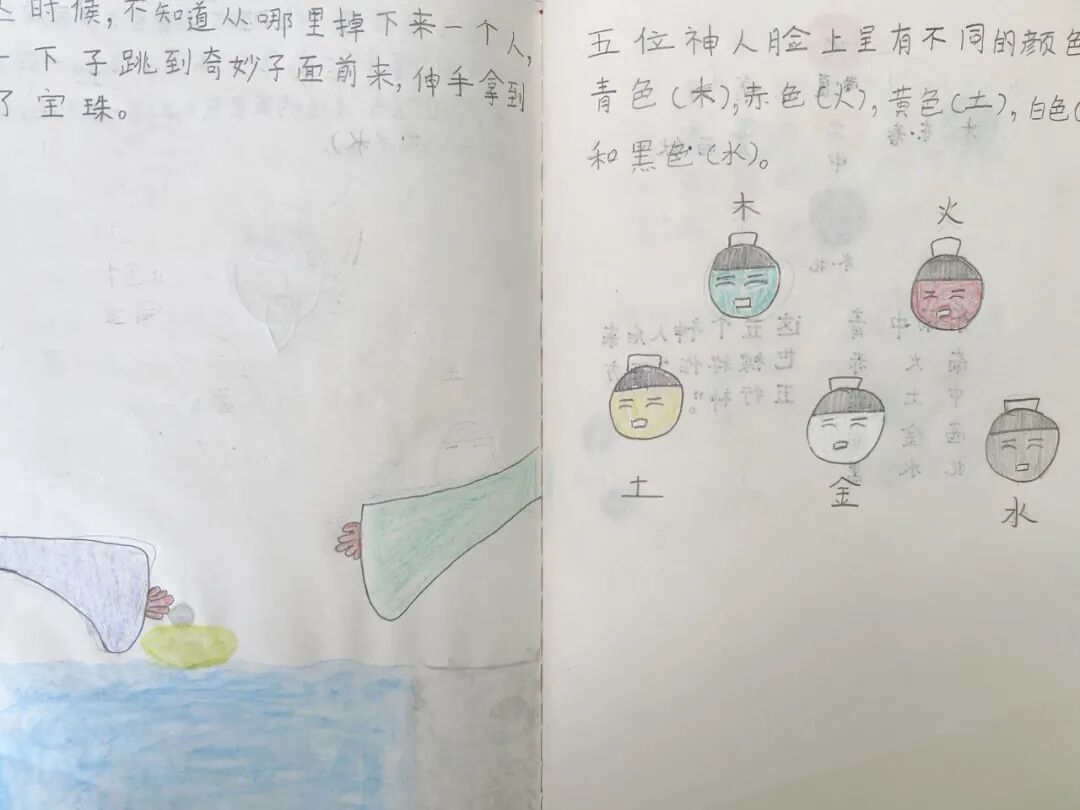 时候,不知道从哪里掉下来一个人,
一下子跳到奇妙子面前来,伸手拿到
了宝珠。
五位神人脸上呈有不同的颜色
青色(木),赤色(火),黄色(土),白色(
和黑色(水)。
木
火
土
金
水